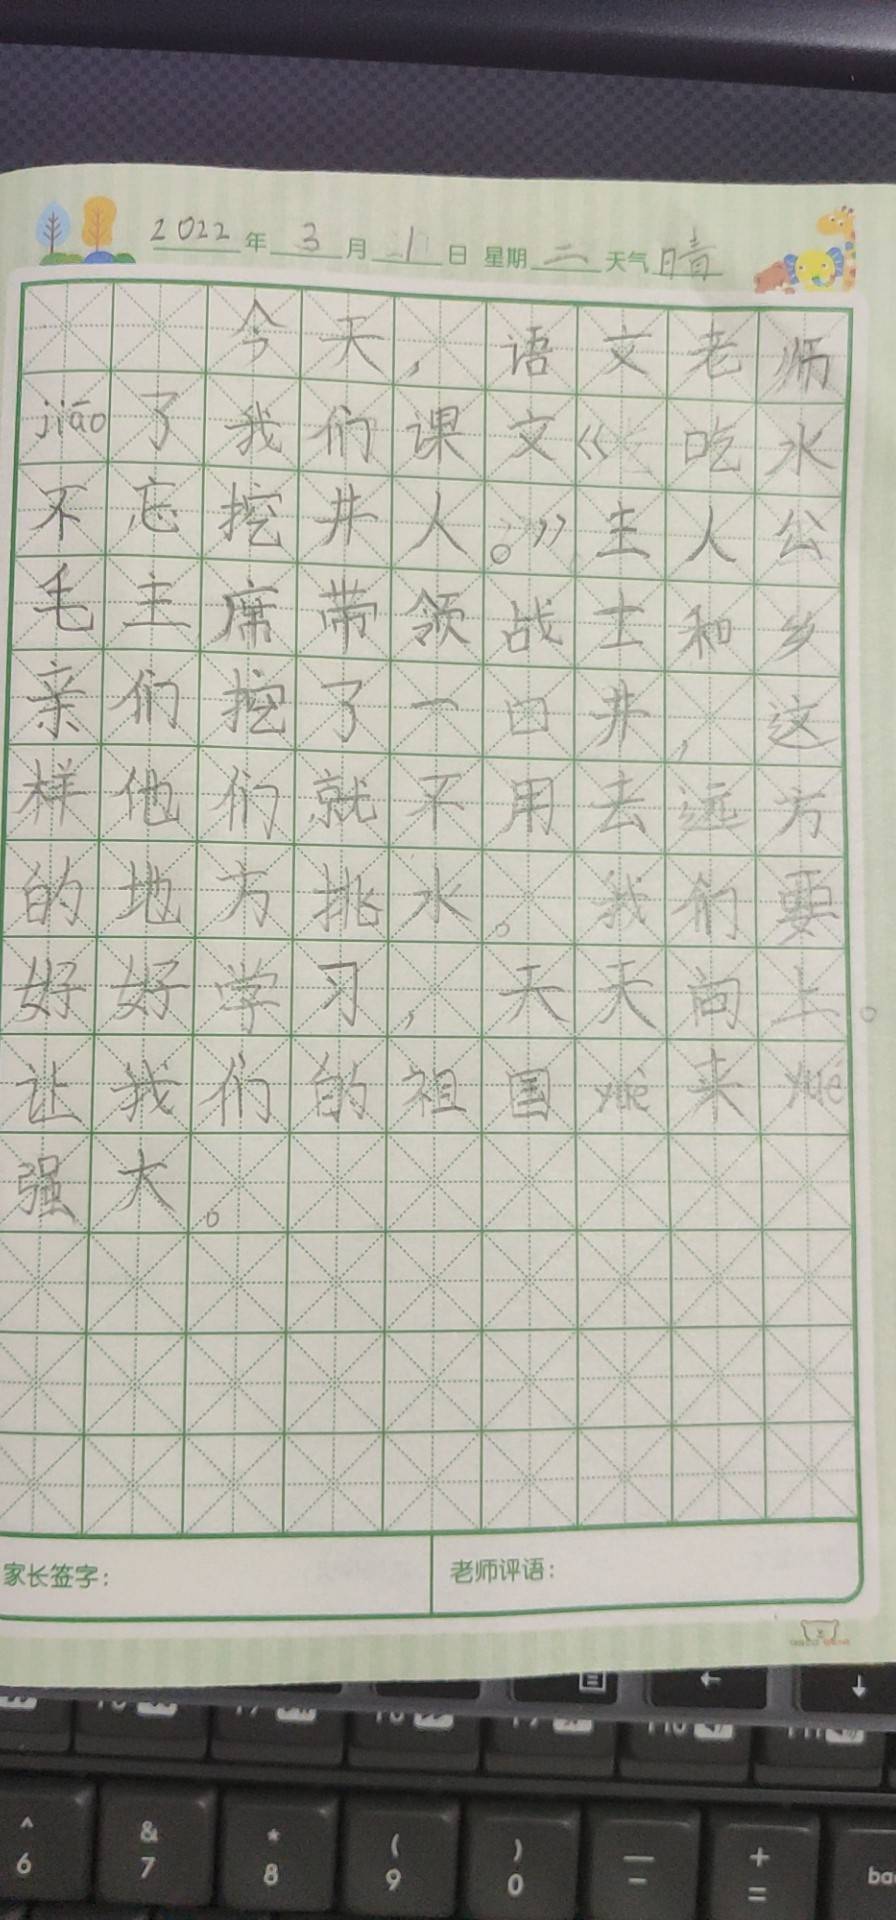 2022年3月1日 星期二 天气晴
今天，语文老师
jiāo了我们课文《吃水
不忘挖井人。》主人公
毛主席带领战士和乡
亲们挖了一口井，这
样他们就不用去远方
的地方挑水。我们要
好好学习，天天向上。
让我们的祖国yuè来yuè
强大。
家长签字：
老师评语：
^ & * ( ) — +
6 7 8 9 0 - = ba